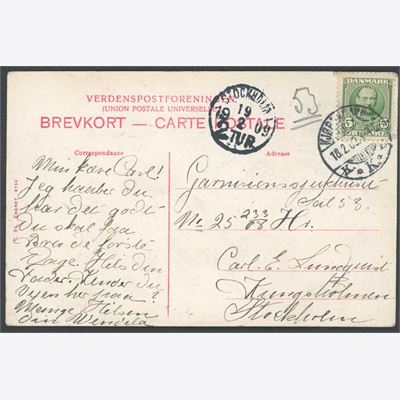 VERDENSPOSTFORENINGEN.
(UNION POSTALE UNIVERSELLE)
BREVKORT — CARTE POSTALE
Correspondance
Adresse
STOCKHOLM
19
2
09
DANMARK
5 5
18.2.09
53
Min kære Carl!
Jeg haaber du
har det godt
Du skal faa
Brev de første
Dage. Hils din
Fader. Kender du
Vejen her paa?
Mange Hilsen
Din Wendela
Garnisonssjukhuset
Sal 53.
No. 25 233/08 Hr.
Carl. E. Lundquist
Kungsholmen
Stockholm